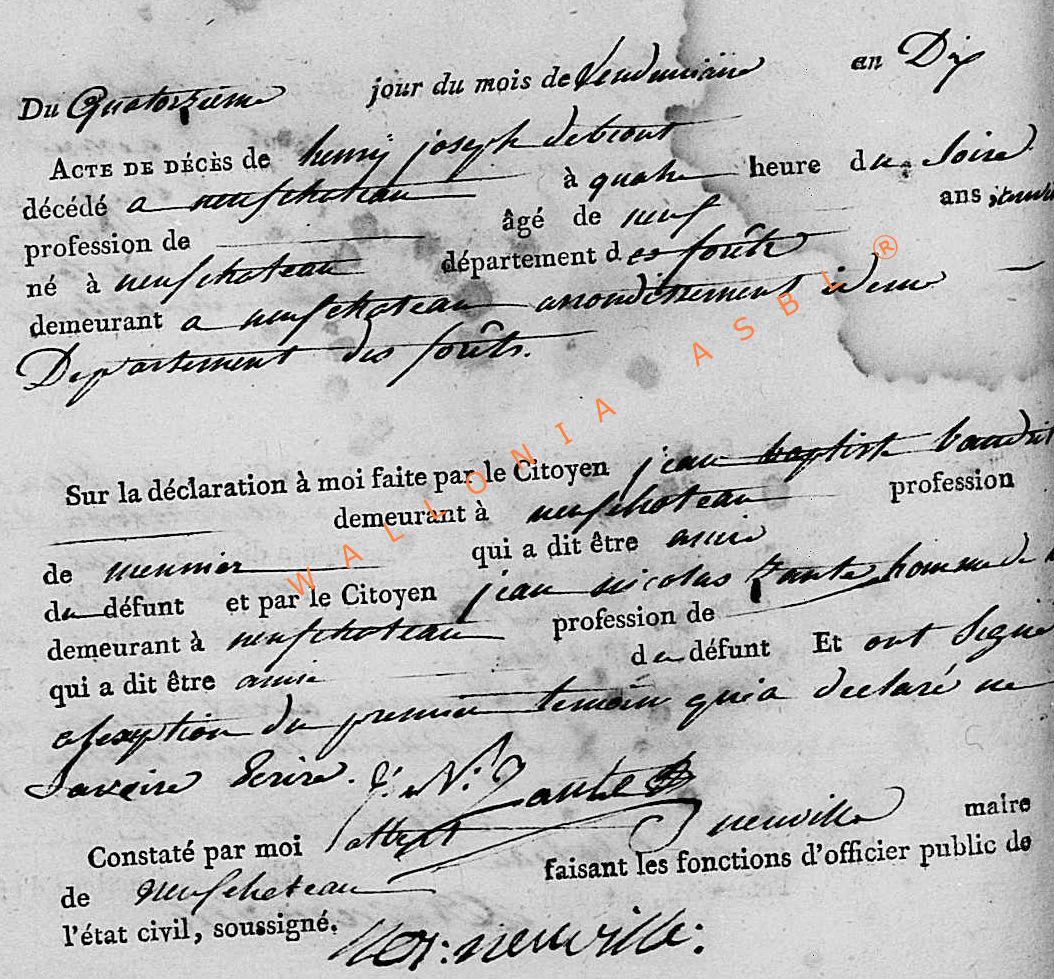 Du Quatorzieme jour du mois de Vendemiaire an Dix
ACTE DE DÉCÈS de henry joseph
décédé a neufchateau à quatre heure du Soire
profession de âgé de neuf ans
né à neufchateau département des forêts
demeurant a neufchateau arrondissement idem
Departement des forêts.
Sur la déclaration à moi faite par le Citoyen jean baptiste
demeurant à neufchateau profession
de meunier qui a dit être amie
du défunt et par le Citoyen jean nicolas Zante homme de
demeurant à neufchateau profession de
qui a dit être amie du défunt Et ont Signé
a lexception du premier temoin qui a declaré ne
Savoire Ecrire. J: N: Zante
Constaté par moi neuville maire
de neufchateau faisant les fonctions d'officier public de
l'état civil, soussigné.
neuville:
WALLONIA ASBL ®